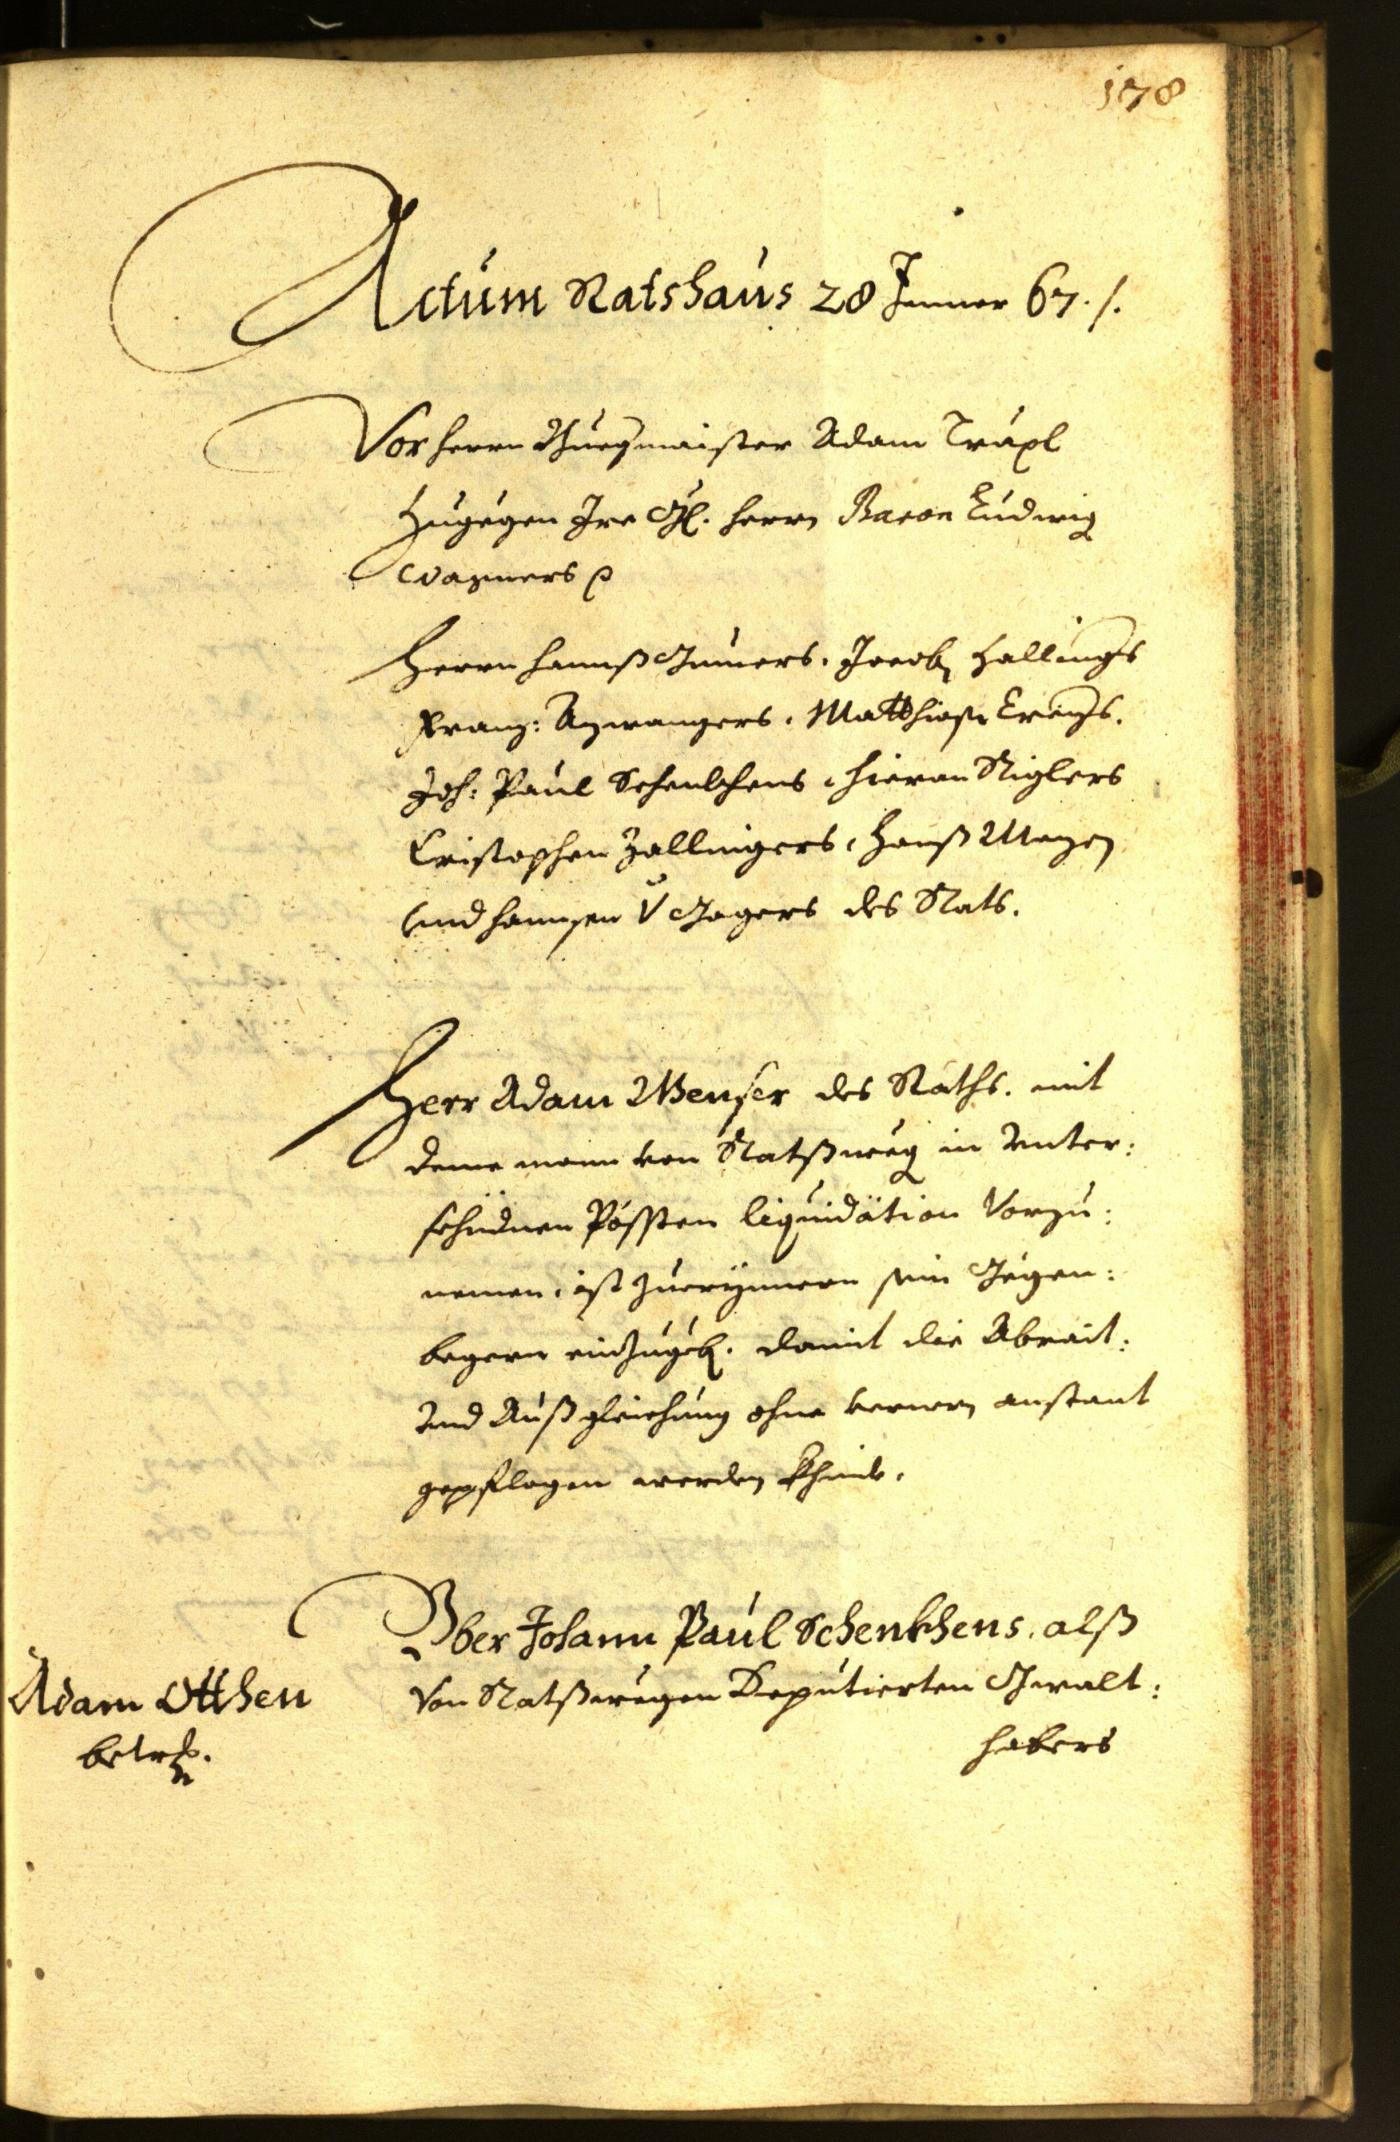 178
Actum Ratshaus 28 Jenner 67 ./.
Vor herrn Burgmaister Adam Träxl
Zugegen Ire Gl. herrn Baron Ludwig
Wagners
Herrn Hannß Gumers, Jacob Zallings
Franz: Azwangers, Matthiaß
Joh: Paul Schenkhens, Hieron Riglers
Cristophen Zallingers, Hanß Mayen
und Hannsen V Jagers des Rats.
Herr Adam Wenser des Raths. mit
deme mann von Ratßweg in Unter:
schidnen Pössten liquidation Vorzu:
nemen, ist zuerynnern sein Gegen:
begern einzugeb. damit die Abrait:
Und Außgleichung ohne verern anstant
gepflogen werden khinde.
Yber Johann Paul Schenkhens, alß
Von Ratßwegen Deputierten Gwalt:
habers
Adam Otthen
betr.